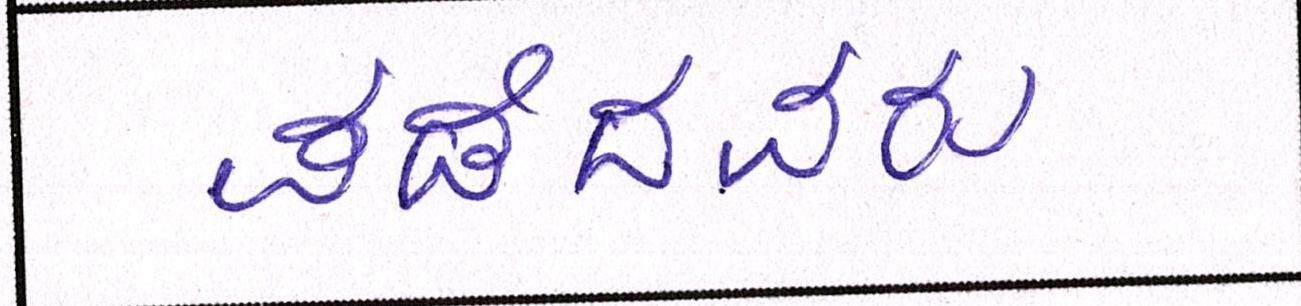 ಪಡೆದವರು